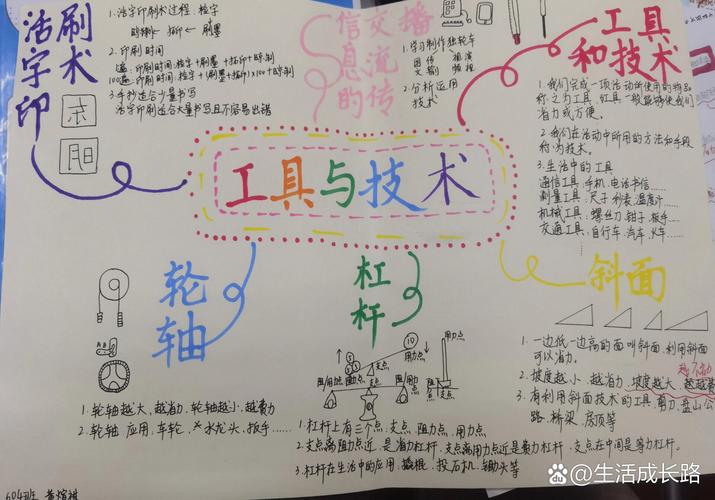 活字印
刷术
1.活字印刷术过程：检字
晾刷← 拓印← 刷墨
2.印刷时间
1遍：印刷时间：检字+刷墨+拓印+晾刷
100遍：印刷时间：检字+(刷墨+拓印)×100+晾刷
3.手抄适合少量书写
活字印刷适合大量书写且不容易出错
信息的
交流传
播
1.学习制作独轮车
2.分析运用
技术
工具
和技术
1.我们完成一项活动所使用的物品
称之为工具,工具一般能够使我们
省力或方便。
2.我们在活动中所用的方法和手段
称为技术。
3.生活中的工具
通信工具:手机.电话书信……
测量工具:尺子.秒表.温度计……
机械工具:螺丝刀 钳子.扳手……
交通工具:自行车.汽车.火车……
工具与技术
轮轴
1.轮轴越大,越省力,轮轴越小,越费力
2.轮轴 应用,车轮,水龙头,扳手……
杠杆
阻力点
支点
用力点
1.杠杆上有三个点,支点,阻力点,用力点
2.支点离阻力点近,是省力杠杆,支点离用力点近是费力杠杆,支点在中间是等力杠杆。
3.杠杆在生活中的应用,撬棍,投石机,锄头等
斜面
1.一边低一边高的面叫斜面,利用斜面
可以省力。
越不省力
2.坡度越小,越省力,坡度越大,越
3.有利用斜面技术的工具,剪刀.盘山公
路.桥梁.房顶等
604班
@生活成长路